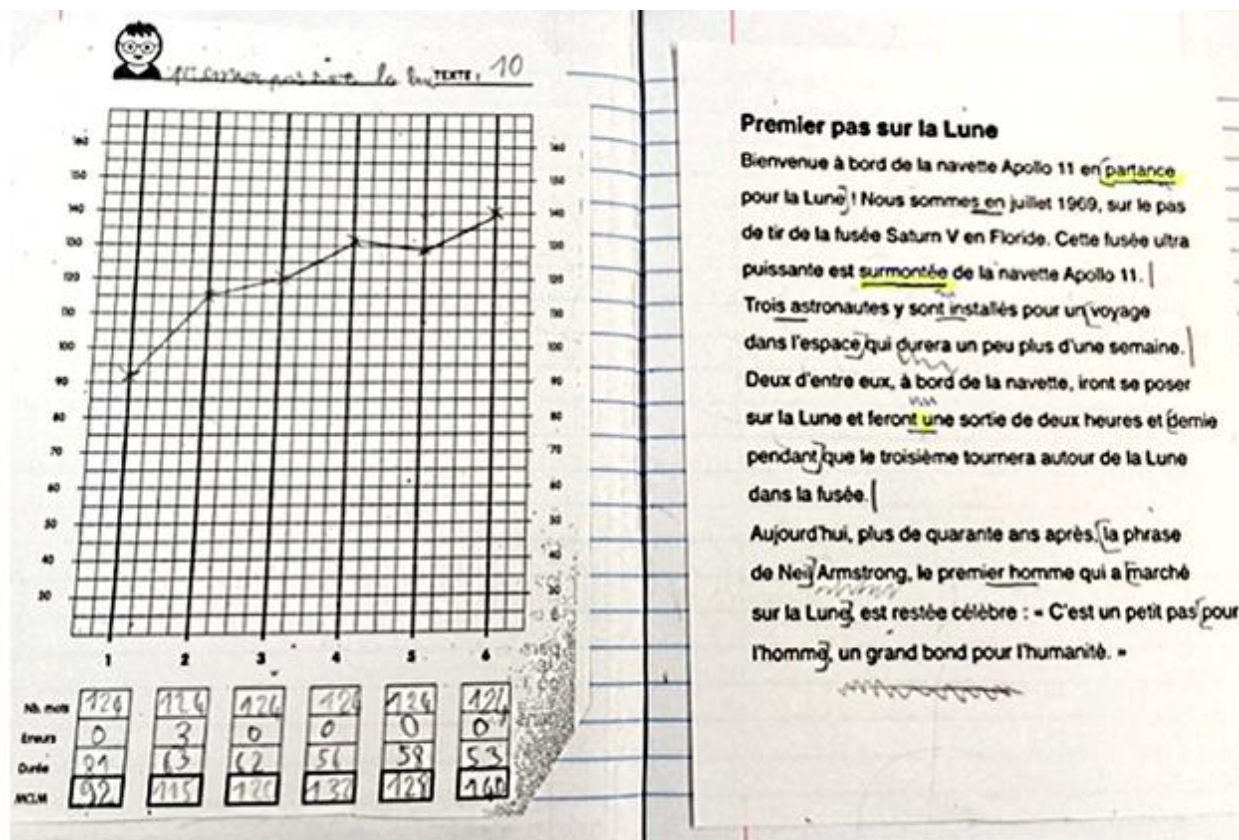 Premier pas sur la TEXTE : 10
160 160
150 150
140 140
130 130
120 120
110 110
100 100
90 90
80 80
70 70
60 60
50 50
40 40
30 30
1 2 3 4 5 6
Nb. mots 124 124 124 124 124 124
Erreurs 0 3 0 0 0 0
Durée 81 63 62 56 58 53
MCLM 92 115 120 132 128 140
Premier pas sur la Lune
Bienvenue à bord de la navette Apollo 11 en partance
pour la Lune ! Nous sommes en juillet 1969, sur le pas
de tir de la fusée Saturn V en Floride. Cette fusée ultra
puissante est surmontée de la navette Apollo 11.
Trois astronautes y sont installés pour un voyage
dans l'espace qui durera un peu plus d'une semaine.
Deux d'entre eux, à bord de la navette, iront se poser
sur la Lune et feront une sortie de deux heures et demie
pendant que le troisième tournera autour de la Lune
dans la fusée.
Aujourd'hui, plus de quarante ans après, la phrase
de Neil Armstrong, le premier homme qui a marché
sur la Lune, est restée célèbre : « C'est un petit pas pour
l'homme, un grand bond pour l'humanité. »